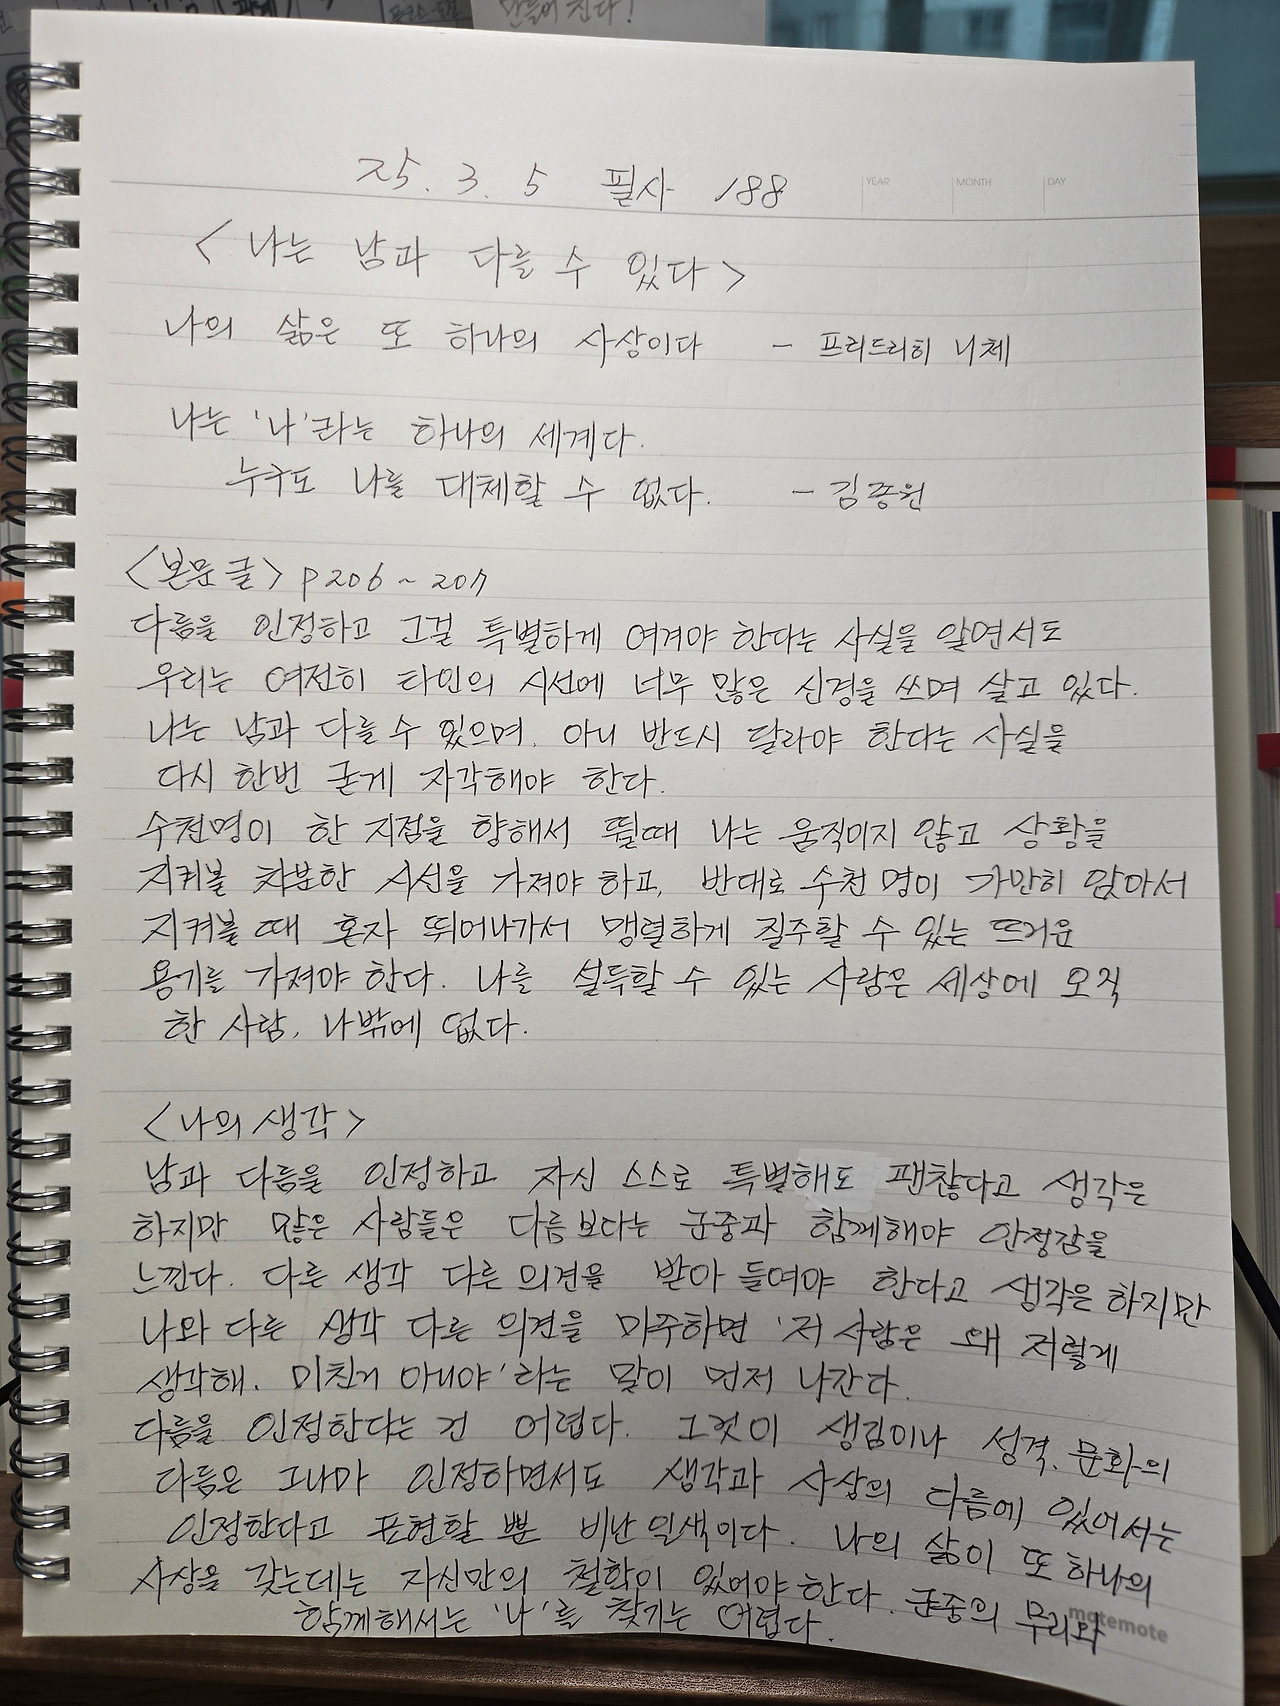 만들어 진다!
25. 3. 5 필사 188
YEAR MONTH DAY
<나는 남과 다를 수 있다>
나의 삶은 또 하나의 사상이다 - 프리드리히 니체
나는 '나'라는 하나의 세계다.
누구도 나를 대체할 수 없다. - 김종원
<본문 글> p206~207
다름을 인정하고 그걸 특별하게 여겨야 한다는 사실을 알면서도
우리는 여전히 타인의 시선에 너무 많은 신경을 쓰며 살고 있다.
나는 남과 다를 수 있으며, 아니 반드시 달라야 한다는 사실을
다시 한번 굳게 자각해야 한다.
수천명이 한 지점을 향해서 뛸때 나는 움직이지 않고 상황을
지켜볼 차분한 시선을 가져야 하고, 반대로 수천 명이 가만히 앉아서
지켜볼 때 혼자 뛰어나가서 맹렬하게 질주할 수 있는 뜨거운
용기를 가져야 한다. 나를 설득할 수 있는 사람은 세상에 오직
한 사람, 나밖에 없다.
<나의 생각>
남과 다름을 인정하고 자신 스스로 특별해도 괜찮다고 생각은
하지만 많은 사람들은 다름 보다는 군중과 함께해야 안정감을
느낀다. 다른 생각 다른 의견을 받아 들여야 한다고 생각은 하지만
나와 다른 생각 다른 의견을 마주하면 '저 사람은 왜 저렇게
생각해. 미친거 아니야'라는 말이 먼저 나간다.
다름을 인정한다는 건 어렵다. 그것이 생김이나 성격, 문화의
다름은 그나마 인정하면서도 생각과 사상의 다름에 있어서는
인정한다고 표현할 뿐 비난 일색이다. 나의 삶이 또 하나의
사상을 갖는데는 자신만의 철학이 있어야 한다. 군중의 무리와
함께해서는 '나'를 찾기는 어렵다.
motemote